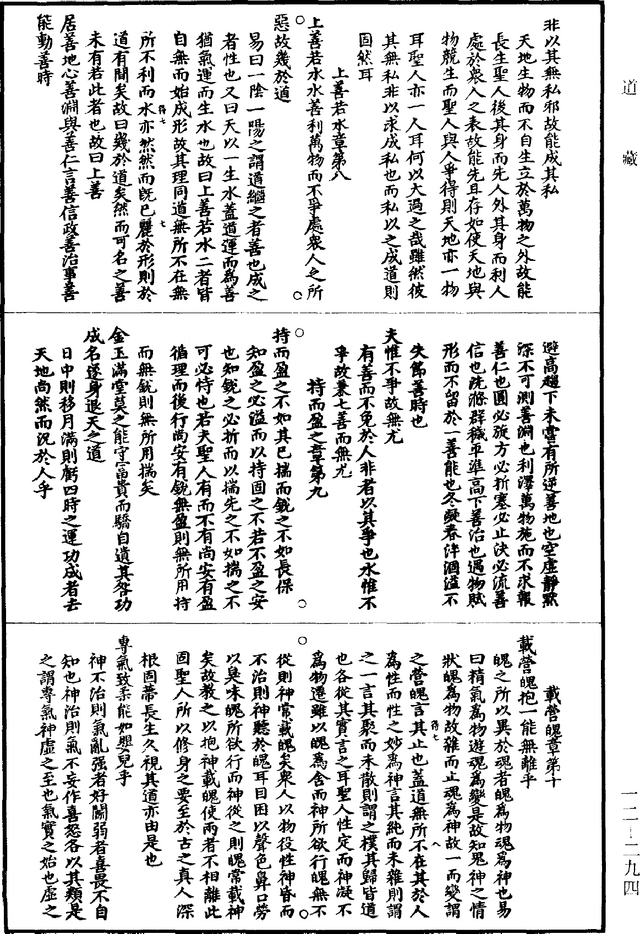 道藏
非以其無私邪故能成其私
天地生物而不自生立於萬物之外故能
長生聖人後其身而先人外其身而利人
處於衆人之表故能先且存如使天地與
物競生而聖人與人爭得則天地亦一物
耳聖人亦一人耳何以大過之哉雖然彼
其無私非以求成私也而私以之成道則
固然耳
上善若水章第八
上善若水水善利萬物而不爭處衆人之所
惡故幾於道
易曰一陰一陽之謂道繼之者善也成之
者性也又曰天以一生水蓋道運而為善
猶氣運而生水也故曰上善若水二者皆
自無而始成形故其理同道無所不在無
所不利而水亦然然而既已麗於形則於
道有間矣故曰幾於道矣然而可名之善
未有若此者也故曰上善
居善地心善淵與善仁言善信政善治事善
能動善時
避高趨下未嘗有所逆善地也空虛靜默
深不可測善淵也利澤萬物施而不求報
善仁也圓必旋方必折塞必止決必流善
信也洗滌群穢平準高下善治也遇物賦
形而不留於一善能也冬凝春泮涸溢不
失節善時也
夫惟不爭故無尤
有善而不免於人非者以其爭也水惟不
爭故兼七善而無尤
持而盈之章第九
持而盈之不如其已揣而銳之不如長保
知盈之必溢而以持固之不若不盈之安
也知銳之必折而以揣先之不如揣之不
可必恃也若夫聖人有而不有尚安有盈
循理而後行尚安有銳無盈則無所用持
而無銳則無所用揣矣
金玉滿堂莫之能守富貴而驕自遺其咎功
成名遂身退天之道
日中則移月滿則虧四時之運功成者去
天地尚然而況於人乎
載營魄章第十
載營魄抱一能無離乎
魄之所以異於魂者魄為物魂為神也易
曰精氣為物遊魂為變是故知鬼神之情
狀魄為物故雜而止魂為神故一而變謂
之營魄言其止也蓋道無所不在其於人
為性而性之妙為神言其純而未雜則謂
之一言其聚而未散則謂之樸其歸皆道
也各從其實言之耳聖人性定而神凝不
為物遷雖以魄為舍而神所欲行魄無不
從則神常載魄矣衆人以物役性神昏而
不治則神聽於魄耳目困以聲色鼻口勞
以臭味魄所欲行而神從之則魄常載神
矣故教之以抱神載魄使兩者不相離此
固聖人所以修身之要至於古之真人深
根固蒂長生久視其道亦由是也
專氣致柔能如嬰兒乎
神不治則氣亂强者好鬭弱者喜畏不自
知也神治則氣不妄作喜怒各以其類是
之謂專氣神虛之至也氣實之始也虛之
一二-二九四